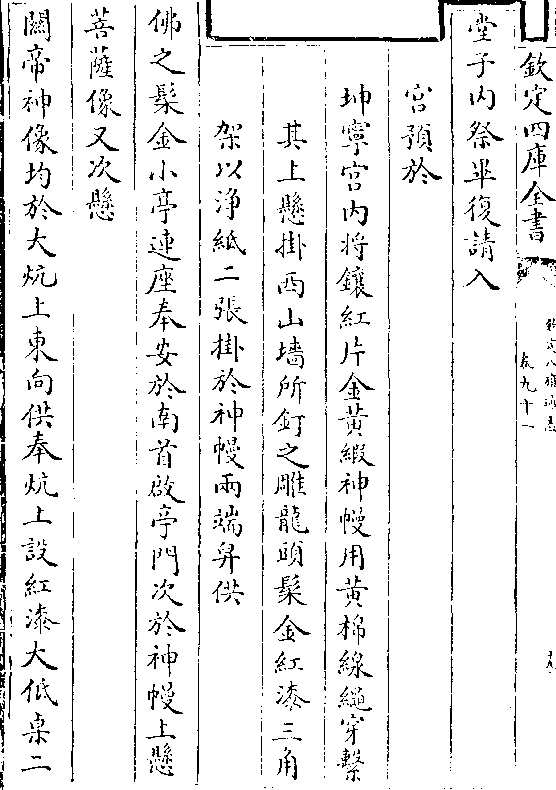 欽定四庫全書
欽定八旗通志
卷九十一
堂子内祭畢復請入
宮預於
坤寧宮内将鑲紅片金黄緞神幔用黄棉線繩穿繫
其上懸掛西山墻所釘之雕龍頭髹金紅漆三角
架以浄紙二張掛於神幔兩端舁供
佛之髹金小亭連座奉安於南首啟亭門次於神幔上懸
菩薩像又次懸
關帝神像均於大炕上東向供奉炕上設紅漆大低桌二